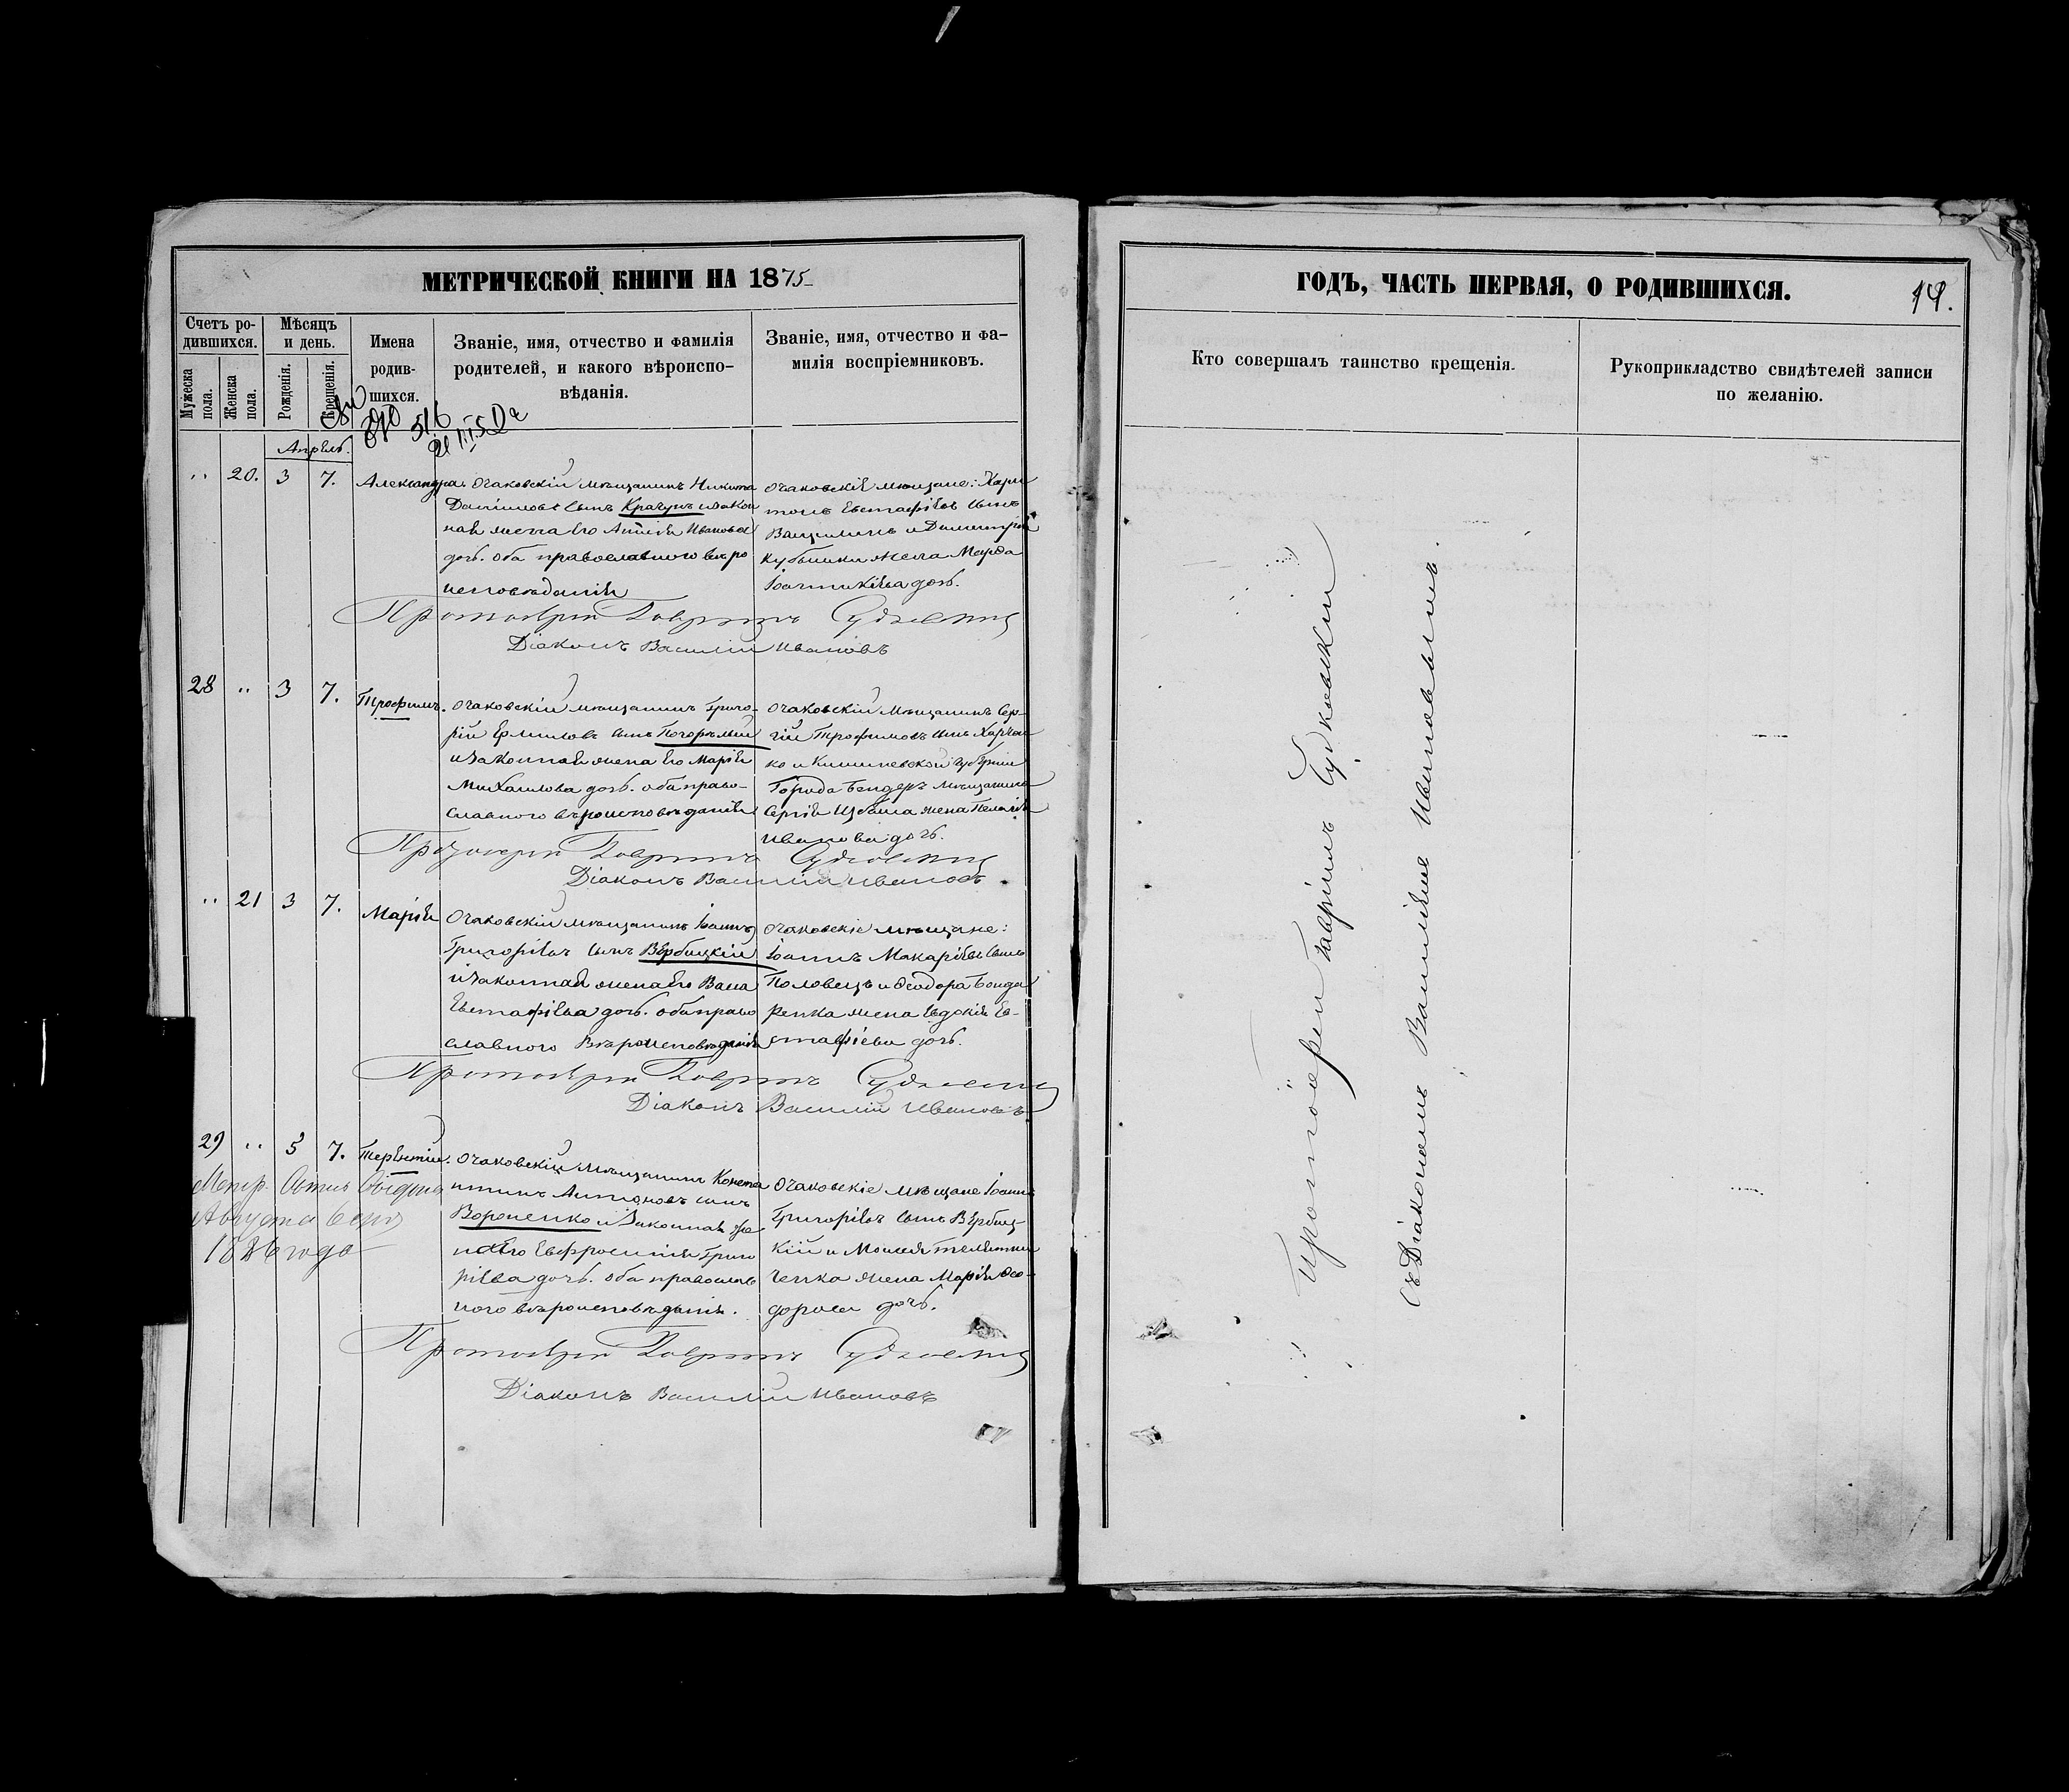 МЕТРИЧЕСКОЙ КНИГИ НА 1875
Счетъ ро-
дившихся.
Мужеска
пола.
Женска
пола.
Мѣсяцъ
и день.
Рожденія.
Крещенія.
Имена
родив-
шихся.
Званіе, имя, отчество и фамилія
родителей, и какого вѣроиспо-
вѣданія.
Званіе, имя, отчество и фа-
милія воспріемниковъ.
516
Апрѣль.
" 20. 3 7. Александра.
Очаковскій мѣщанинъ Никита
Даніиловъ сынъ Крачунъ и закон
ная жена его
Ивановa
дочь. оба православнаго вѣро
исповѣданія
Очаковскіе мѣщане: Хари
тонъ Евстафіевъ сынъ
и Димитрія
жена Марѳа
дочь.
Протоіерей Гавріилъ Судковскій
Діаконъ Василій Ивановъ
28 " 3 7. Трофимъ.
Очаковскій мѣщанинъ Григо-
рій Ермиловъ сынъ Погорѣлый
и законная жена его Марія
Михаилова дочь. оба право-
славного вѣроисповѣданія
Очаковскій мѣщанинъ Сер-
гій Трофимовъ сынъ Харчен
ко и Кишиневской губерніи
Города Бендеръ мѣщанина
Сергія жена Пелагія
Иванова дочь.
Протоіерей Гавріилъ Судковскій
Діаконъ Василій Ивановъ.
" 21 3 7. Марія
Очаковскій мѣщанинъ Іоаннъ
Григоріевъ сынъ Вербицкій
и законная жена его
Евстафіева дочь. оба право
славного вѣроисповѣданія
Очаковскіе мѣщане:
Іоаннъ Макаріевъ сынъ
Половецъ и Ѳеодора Бонда
ренка жена Евдокія Ев-
стафіева дочь.
Протоіерей Гавріилъ Судковскій
Діаконъ Василій Ивановъ
29 " 5 7. Терентій.
Августа
1886 года
Очаковскій мѣщанинъ Конста
нтинъ Антоновъ сынъ
Вороненко и законная же
на его Евфросинія Григо
ріева дочь. оба православ
ного вѣроисповѣданія.
Очаковскіе мѣщане Іоаннъ
Григоріевъ сынъ Вербиц-
кій и Моисея
ченка жена Марія Ѳео-
дорова дочь.
Протоіерей Гавріилъ Судковскій
Діаконъ Василій Ивановъ
ГОДЪ, ЧАСТЬ ПЕРВАЯ, О РОДИВШИХСЯ.
14.
Кто совершалъ таинство крещенія.
Рукоприкладство свидѣтелей записи
по желанію.
Протоіерей Гавріилъ Судковскій
съ Діакономъ Василіемъ Ивановымъ.